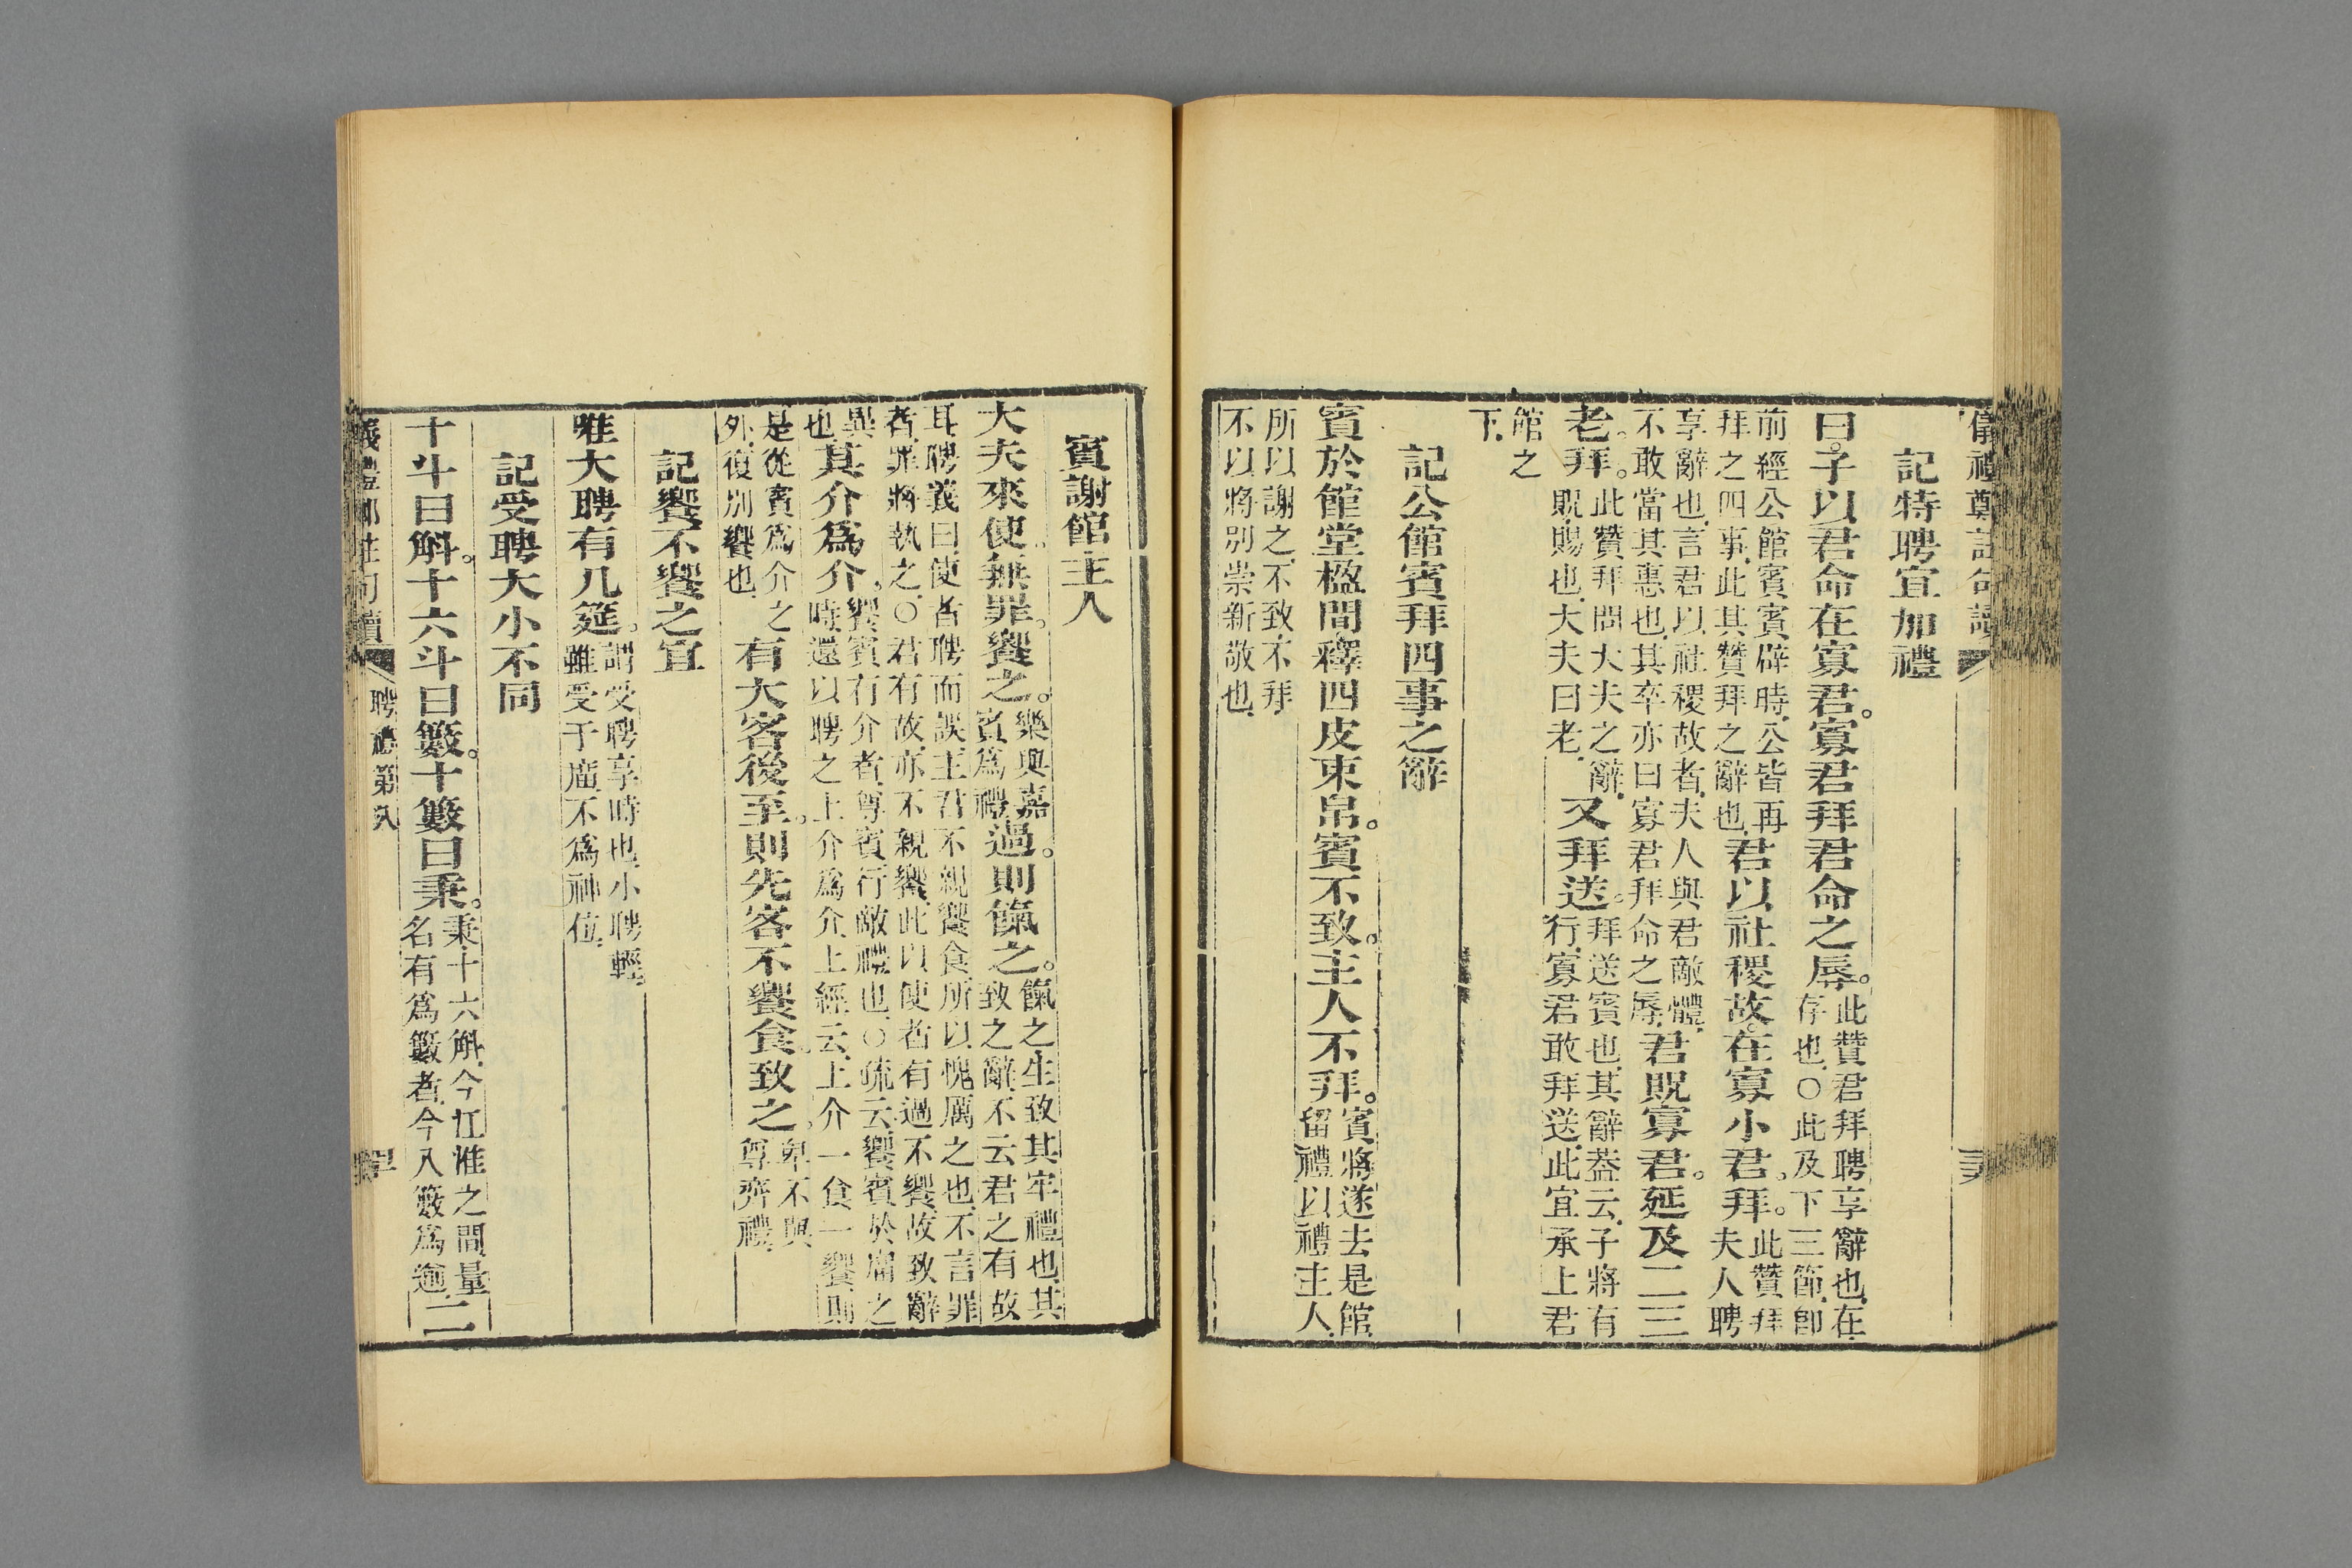 儀禮鄭註句讀
記特聘宜加禮
曰。子以君命在寡君。寡君拜君命之辱。此贊君拜聘享辭也、在、存也、○此及下三節、卽
前經公館賓賓辟時、公皆再拜之四事、此其贊拜之辭也、君以社稷故。在寡小君。拜。此贊拜夫人聘
享辭也、言君以社稷故者、夫人與君敵體、不敢當其惠也、其卒亦曰寡君拜命之辱、君貺寡君。延及二三
老。拜。此贊拜問大夫之辭、貺、賜也、大夫曰老、又拜送。拜送賓也、其辭葢云、子將有行、寡君敢拜送、此宜承上君
館之下、
記公館賓拜四事之辭
賓於館堂楹間。釋四皮束帛。賓不致。主人不拜。賓將遂去是館、留禮以禮主人、
所以謝之、不致不拜、不以將別崇新敬也、
賓謝館主人
大夫來使。無罪。饗之。樂與嘉賓爲禮、過。則餼之。餼之、生致其牢禮也、其致之辭、不云君之有故
耳、聘義曰、使者聘而誤、主君不親饗食、所以愧厲之也、不言罪者、罪將執之、○君有故、亦不親饗、此以使者有過不饗、故致辭
異也、其介爲介。饗賓有介者、尊賓行敵禮也、○疏云、饗賓於廟之時、還以聘之上介爲介、上經云、上介一食一饗、則
是從賓爲介之外、復別饗也、有大客後至。則先客不饗食。致之。卑不與尊齊禮、
記饗不饗之宜
唯大聘有几筵。謂受聘享時也、小聘輕、雖受于廟、不爲神位、
記受聘大小不同
十斗曰斛。十六斗曰籔。十籔曰秉。秉十六斛、今江淮之間、量名有爲籔者、今八籔爲逾、二
儀禮鄭註句讀
聘禮第八